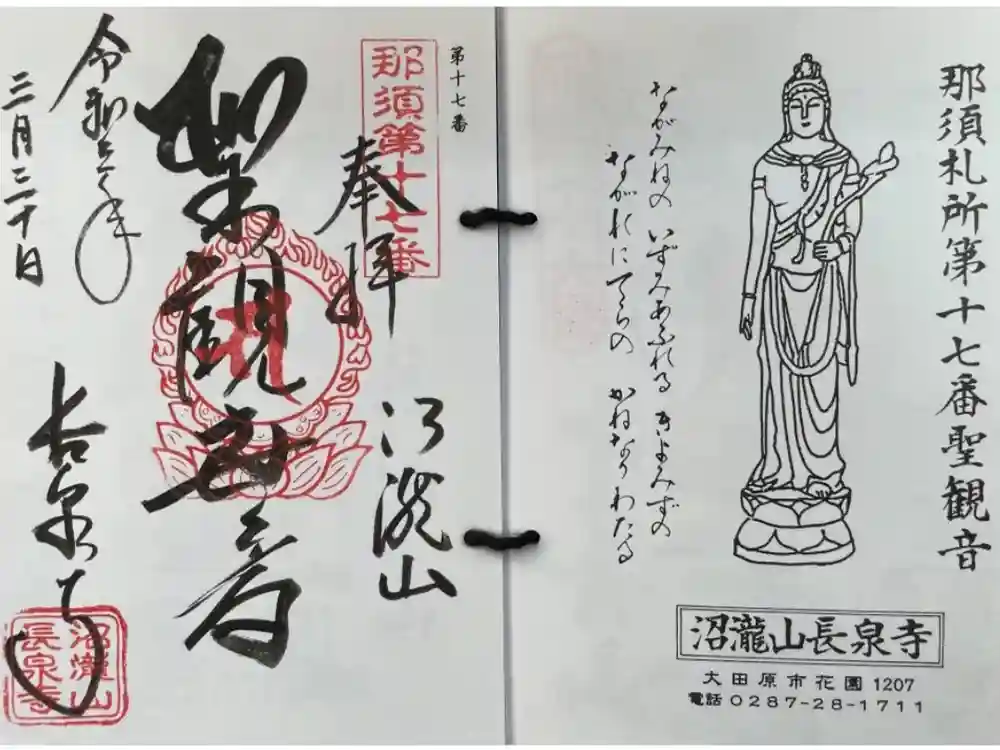 那須札所第十七番聖観音
ながみねの いずみあふれる きよみずの
ながれにてらの かねなりわたる
沼瀧山長泉寺
大田原市花園1207
電話0287-28-1711
第十七番
那須第十七番
奉拝
沼瀧山
聖観世音
令和六年
三月二十日
長泉寺
沼瀧山
長泉寺